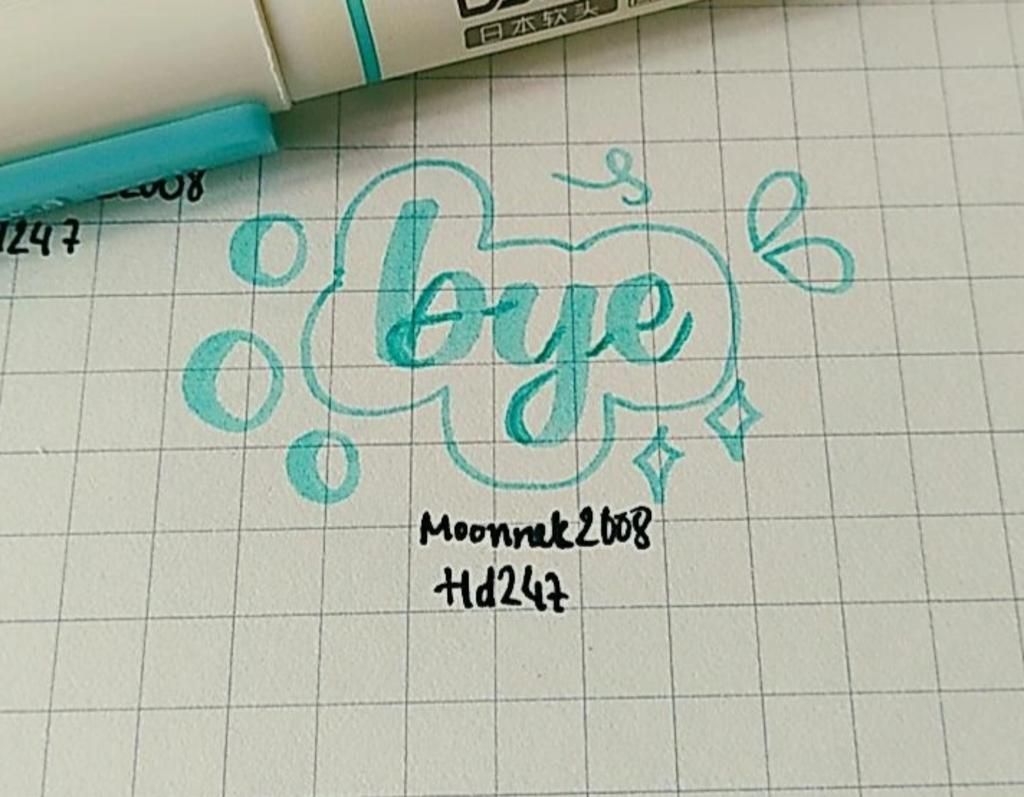 日本软头
2008
1247
bye
Moonnek2008
Hd247